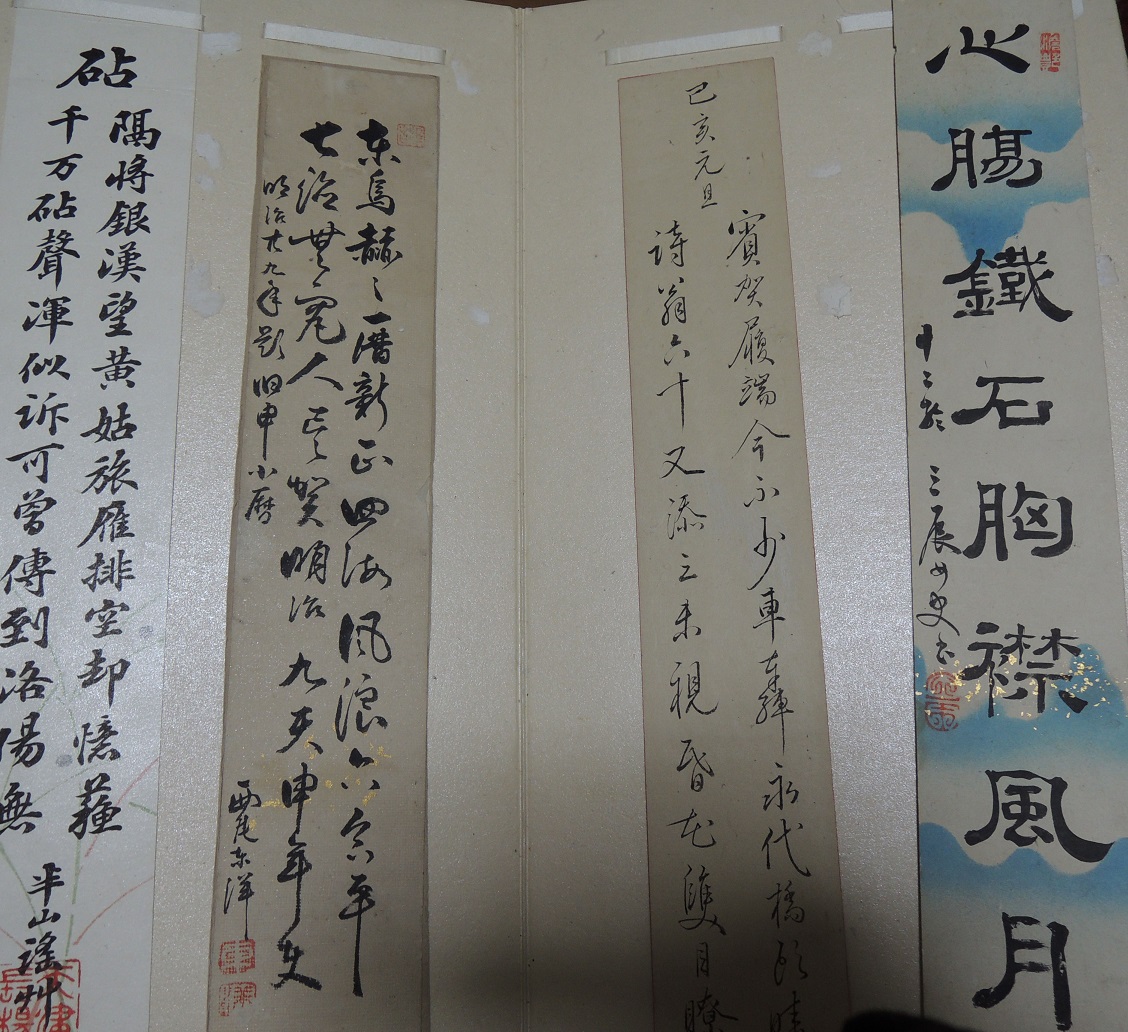 心腸鐵石胸襟風月
十二齡 三辰女史書
己亥元旦
賓賀履端今不少車 永代橋頭晴
詩翁六十又添三未視昏花雙目瞭
東烏赫々一暦新正四海風浪六合平
七治無冤人 賀明治九天申年史
明治廿九年題旧申小暦
西尾東洋
砧
隔將銀漢望黄姑旅雁排空却憶蘓
千万砧聲渾似訴可曾傳到洛陽無
半山謠艸